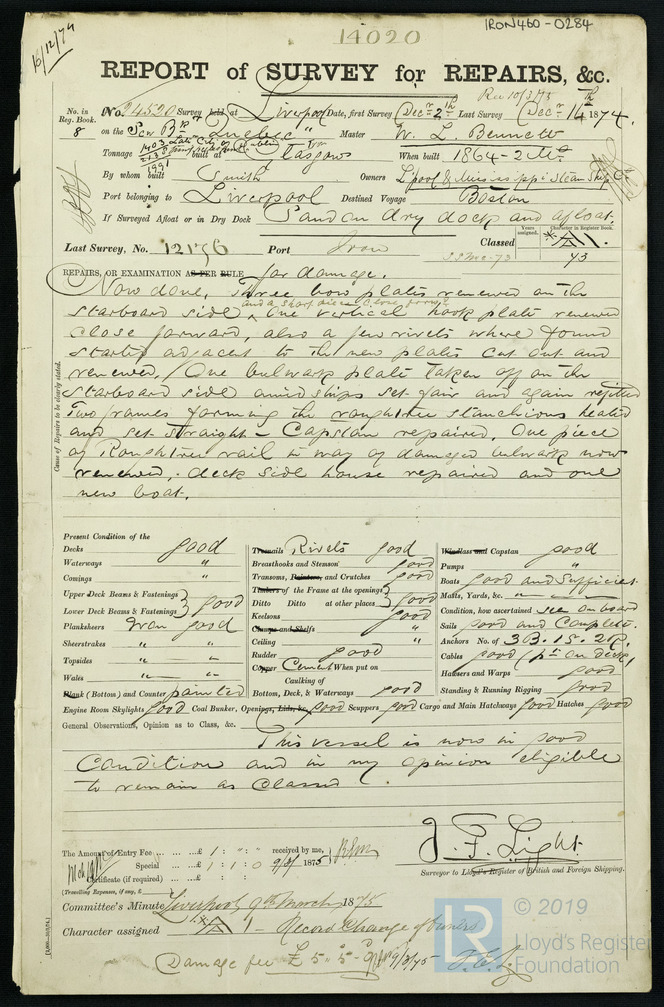 IRON460-0284
16/12/74
14020
REPORT of SURVEY for REPAIRS, &c.
Rec 10/3/75
No. in Reg. Book. 8
No. 24520 Survey held at Liverpool Date, first Survey Decr 2th Last Survey Decr 14th 1874.
on the Scw Bk "Quebec" Master W. L. Bennett
Tonnage 1403 2138 1991 built at Glasgow When built 1864-2 Mo
By whom built Smith Owners L'pool & Mississippi Steam Ship Co
Port belonging to Liverpool Destined Voyage Boston
If Surveyed Afloat or in Dry Dock Sandon dry dock and afloat.
Years assigned. Character in Register Book.
Last Survey, No. 12176 Port Iron Classed A1.
73
REPAIRS, OR EXAMINATION AS PER RULE for damage.
Cause of Repairs to be clearly stated.
Now done, Three bow plates renewed on the
and a short piece close forwd
starboard side, One vertical hook plate renewed
close forward, also a few rivets where found
started adjacent to the new plates cut out and
renewed. One bulwark plate taken off on the
starboard side amidships set fair and again refitted
Two frames forming the roughtree stanchions heated
and set straight - Capstan repaired. One piece
of Roughtree rail in way of damaged bulwark now
renewed, deck side house repaired and one
new boat.
Present Condition of the
Decks good
Waterways "
Comings "
Upper Deck Beams & Fastenings
Lower Deck Beams & Fastenings } good
Planksheers Iron good
Sheerstrakes " "
Topsides " "
Wales " "
Plank (Bottom) and Counter painted
Treenails Rivets good
Breasthooks and Stemson good
Transoms, Pointers, and Crutches good
Timbers of the Frame at the openings
Ditto Ditto at other places } good
Keelsons good
Clamps and Shelfs "
Ceiling "
Rudder good
Copper Cement When put on
Caulking of
Bottom, Deck, & Waterways good
Windlass and Capstan good
Pumps "
Boats good and Sufficient
Masts, Yards, &c. " "
Condition, how ascertained see on board
Sails good and Complete.
Anchors No. of 3B. 1S. 2K.
Cables good (pt on deck)
Hawsers and Warps good
Standing & Running Rigging good
Engine Room Skylights good Coal Bunker, Openings, Lids, &c. good Scuppers good Cargo and Main Hatchways good Hatches good
General Observations, Opinion as to Class, &c.
This vessel is now in good
Condition and in my opinion eligible
to remain as Classed.
The Amount of Entry Fee ... ... ... £ 1 : " : " received by me,
Special ... ... £ 1 : 1 : 0 9/3/1875
Certificate (if required) ... ... £
(Travelling Expenses, if any, £
J. F. Light
Surveyor to Lloyd's Register of British and Foreign Shipping.
Committee's Minute Liverpool 9th March 1875
Character assigned A 1 - Record Change of owners
Damage fee £5"5"- 9/3/75
© 2019
LR
Lloyd's Register
Foundation